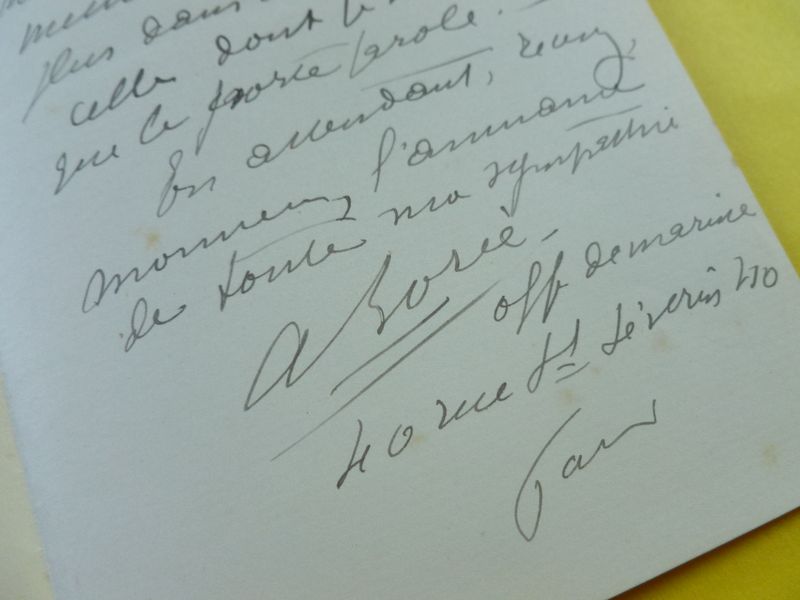 plus dans
celle dont je
que le porte parole.
En attendant, recevez,
monsieur, l'assurance
de toute ma sympathie
A Borie
off de marine
40 rue St Séverin 40
Paris